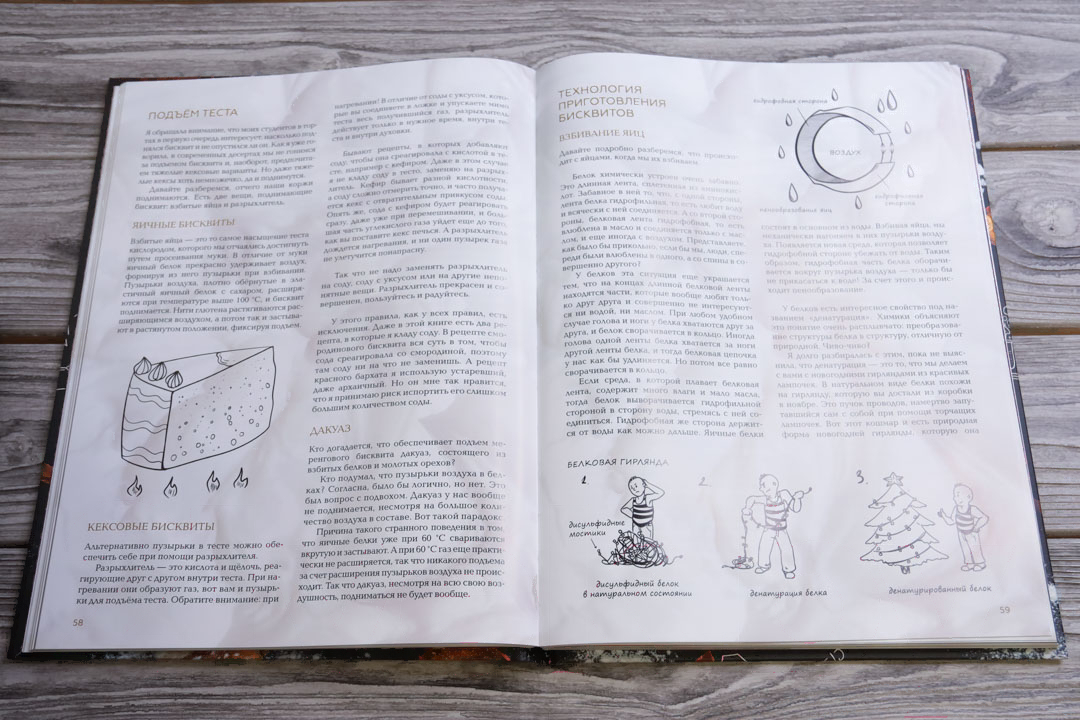 ПОДЪЁМ ТЕСТА
Я обращала внимание, что моих студентов в тор-
тах в первую очередь интересует, насколько под-
нялся бисквит и не опустился ли он. Как я уже го-
ворила, в современных десертах мы не гонимся
за подъёмом бисквита и, наоборот, предпочита-
ем тяжелые кексовые варианты. Но даже тяже-
лые кексы хоть немножечко, да и поднимутся.
Давайте разберемся, отчего наши коржи
поднимаются. Есть две вещи, поднимающие
бисквит: взбитые яйца и разрыхлитель.
ЯИЧНЫЕ БИСКВИТЫ
Взбитые яйца — это то самое насыщение теста
кислородом, которого мы отчаялись достигнуть
путем просеивания муки. В отличие от муки
яичный белок прекрасно удерживает воздух,
формируя из него пузырьки при взбивании.
Пузырьки воздуха, плотно обёрнутые в эла-
стичный яичный белок с сахаром, расширя-
ются при температуре выше 100 °С, и бисквит
поднимается. Нити глютена растягиваются рас-
ширяющимся воздухом, а потом так и застыва-
ют в растянутом положении, фиксируя подъем.
КЕКСОВЫЕ БИСКВИТЫ
Альтернативно пузырьки в тесте можно обе-
спечить себе при помощи разрыхлителя.
Разрыхлитель — это кислота и щёлочь, реа-
гирующие друг с другом внутри теста. При на-
гревании они образуют газ, вот вам и пузырь-
ки для подъёма теста. Обратите внимание: при
58
нагревании! В отличие от соды с уксусом, кото-
рые вы соединяете в ложке и упускаете мимо
теста весь получившийся газ, разрыхлитель
действует только в нужное время, внутри те-
ста и внутри духовки.
Бывают рецепты, в которых добавляют
соду, чтобы она среагировала с кислотой в те-
сте, например с кефиром. Даже в этом случае
я не кладу соду в тесто, заменяю на разрых-
литель. Кефир бывает разной кислотности,
а соду сложно отмерить точно, и часто получа-
ется кекс с отвратительным привкусом соды.
Опять же, сода с кефиром будет реагировать
сразу, даже уже при перемешивании, и боль-
шая часть углекислого газа уйдет еще до того,
как вы поставите кекс печься. А разрыхлитель
дождется нагревания, и ни один пузырек газа
не улетучится понапрасну.
Так что не надо заменять разрыхлитель
на соду, соду с уксусом или на другие непо-
нятные вещи. Разрыхлитель прекрасен и со-
вершенен, пользуйтесь и радуйтесь.
У этого правила, как у всех правил, есть
исключения. Даже в этой книге есть два ре-
цепта, в которые я кладу соду. В рецепте смо-
родинового бисквита вся суть в том, чтобы
сода среагировала со смородиной, поэтому
там соду ни на что не заменишь. А рецепт
красного бархата я использую устаревший,
даже архаичный. Но он мне так нравится,
что я принимаю риск испортить его слишком
большим количеством соды.
ДАКУАЗ
Кто догадается, что обеспечивает подъем ме-
ренгового бисквита дакуаз, состоящего из
взбитых белков и молотых орехов?
Кто подумал, что пузырьки воздуха в бел-
ках? Согласна, было бы логично, но нет. Это
был вопрос с подвохом. Дакуаз у нас вообще
не поднимается, несмотря на большое коли-
чество воздуха в составе. Вот такой парадокс.
Причина такого странного поведения в том,
что яичные белки уже при 60 °С свариваются
вкрутую и застывают. А при 60 °С газ еще практи-
чески не расширяется, так что никакого подъема
за счет расширения пузырьков воздуха не проис-
ходит. Так что дакуаз, несмотря на всю свою воз-
душность, подниматься не будет вообще.
ТЕХНОЛОГИЯ
ПРИГОТОВЛЕНИЯ
БИСКВИТОВ
ВЗБИВАНИЕ ЯИЦ
Давайте подробно разберемся, что происхо-
дит с яйцами, когда мы их взбиваем.
Белок химически устроен очень забавно.
Это длинная лента, сплетенная из аминокис-
лот. Забавное в ней то, что, с одной стороны,
лента белка гидрофильная, то есть любит воду
и всячески с ней соединяется. А со второй сто-
роны, белковая лента гидрофобная, то есть
влюблена в масло и соединяется только с мас-
лом, и еще иногда с воздухом. Представляете,
как было бы прикольно, если бы мы, люди, спе-
реди были влюблены в одного, а со спины в со-
вершенно другого?
У белков эта ситуация еще украшается
тем, что на концах длинной белковой ленты
находятся части, которые вообще любят толь-
ко друг друга и совершенно не интересуют-
ся ни водой, ни маслом. При любом удобном
случае голова и ноги у белка хватаются друг за
друга, и белок сворачивается в кольцо. Иногда
голова одной ленты белка хватается за ноги
другой ленты белка, и тогда белковая цепочка
у нас как бы удлиняется. Но потом все равно
сворачивается в кольцо.
Если среда, в которой плавает белковая
лента, содержит много влаги и мало масла,
тогда белок выворачивается гидрофильной
стороной в сторону воды, стремясь с ней со-
единиться. Гидрофобная же сторона держит-
ся от воды как можно дальше. Яичные белки
гидрофобная сторона
ВОЗДУХ
гидрофильная
сторона
пенообразование яиц
состоят в основном из воды. Взбивая яйца, мы
механически вгоняем в них пузырьки возду-
ха. Появляется новая среда, которая позволяет
гидрофобной стороне убежать от воды. Таким
образом, гидрофобная часть белка оборачи-
вается вокруг пузырька воздуха — только бы
не прикасаться к воде! За счет этого и проис-
ходит пенообразование.
У белков есть интересное свойство под на-
званием «денатурация». Химики объясняют
это понятие очень расплывчато: преобразова-
ние структуры белка в структуру, отличную от
природной. Чиво-чиво?
Я долго разбиралась с этим, пока не выяс-
нила, что денатурация — это то, что мы делаем
с вами с новогодними гирляндами из красивых
лампочек. В натуральном виде белки похожи
на гирлянду, которую вы достали из коробки
в ноябре. Это пучок проводов, намертво запу-
тавшийся сам с собой при помощи торчащих
лампочек. Вот этот кошмар и есть природная
форма новогодней гирлянды, которую она
БЕЛКОВАЯ ГИРЛЯНДА
1.
2.
3.
дисульфидные
мостики
дисульфидный белок
в натуральном состоянии
денатурация белка
денатурированный белок
59